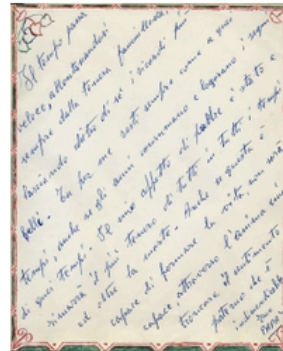 Il tempo passa
veloce, allontanandosi
sempre dalla tenera fanciullezza,
lasciando dietro di sé i ricordi più
belli. Tu per me resti sempre come a quei
tempi, anche se gli anni consumano e logorano i sogni
di quei tempi. Il mio affetto di padre è stato e
rimarrà il più tenero di tutti in tutti i tempi
ed oltre la morte. Anche se questa è
capace di fermare la vita, non sarà
capace attraverso l'anima
troncare il sentimento
paterno che è
PAPÀ